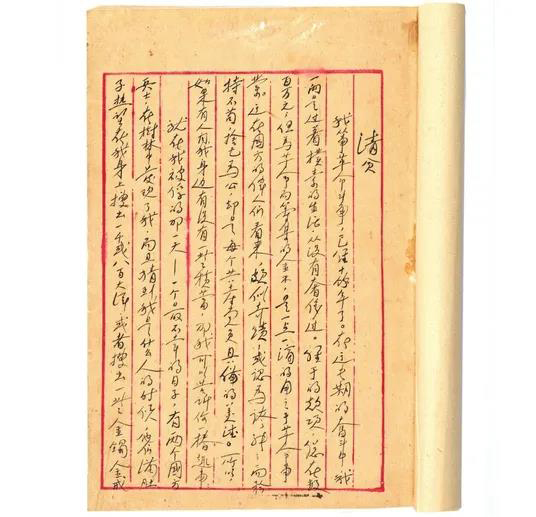 清貧
我從事革命斗爭，已經十餘年了。在這长期的奮斗中，我
一向是过着樸素的生活，從没有奢侈过。經手的款項，總在数
百万元，但為革命而筹集的金錢，是一点一滴的用之于革命事
業。這在國方的偉人们看來，頗似奇蹟，或認為誇張；而矜
持不苟，捨己為公，却是每个共產党員具備的美德。所以，
如果有人问我身边有没有一些積蓄，那我可以告訴你一樁趣事：
就在我被俘的那一天——一个最不幸的日子，有两个國方
兵士，在樹林中发現了我，而且猜到我是什么人的时候，他们满肚
子热望在我身上搜出一千或八百大洋，或者搜出一些金镯金戒